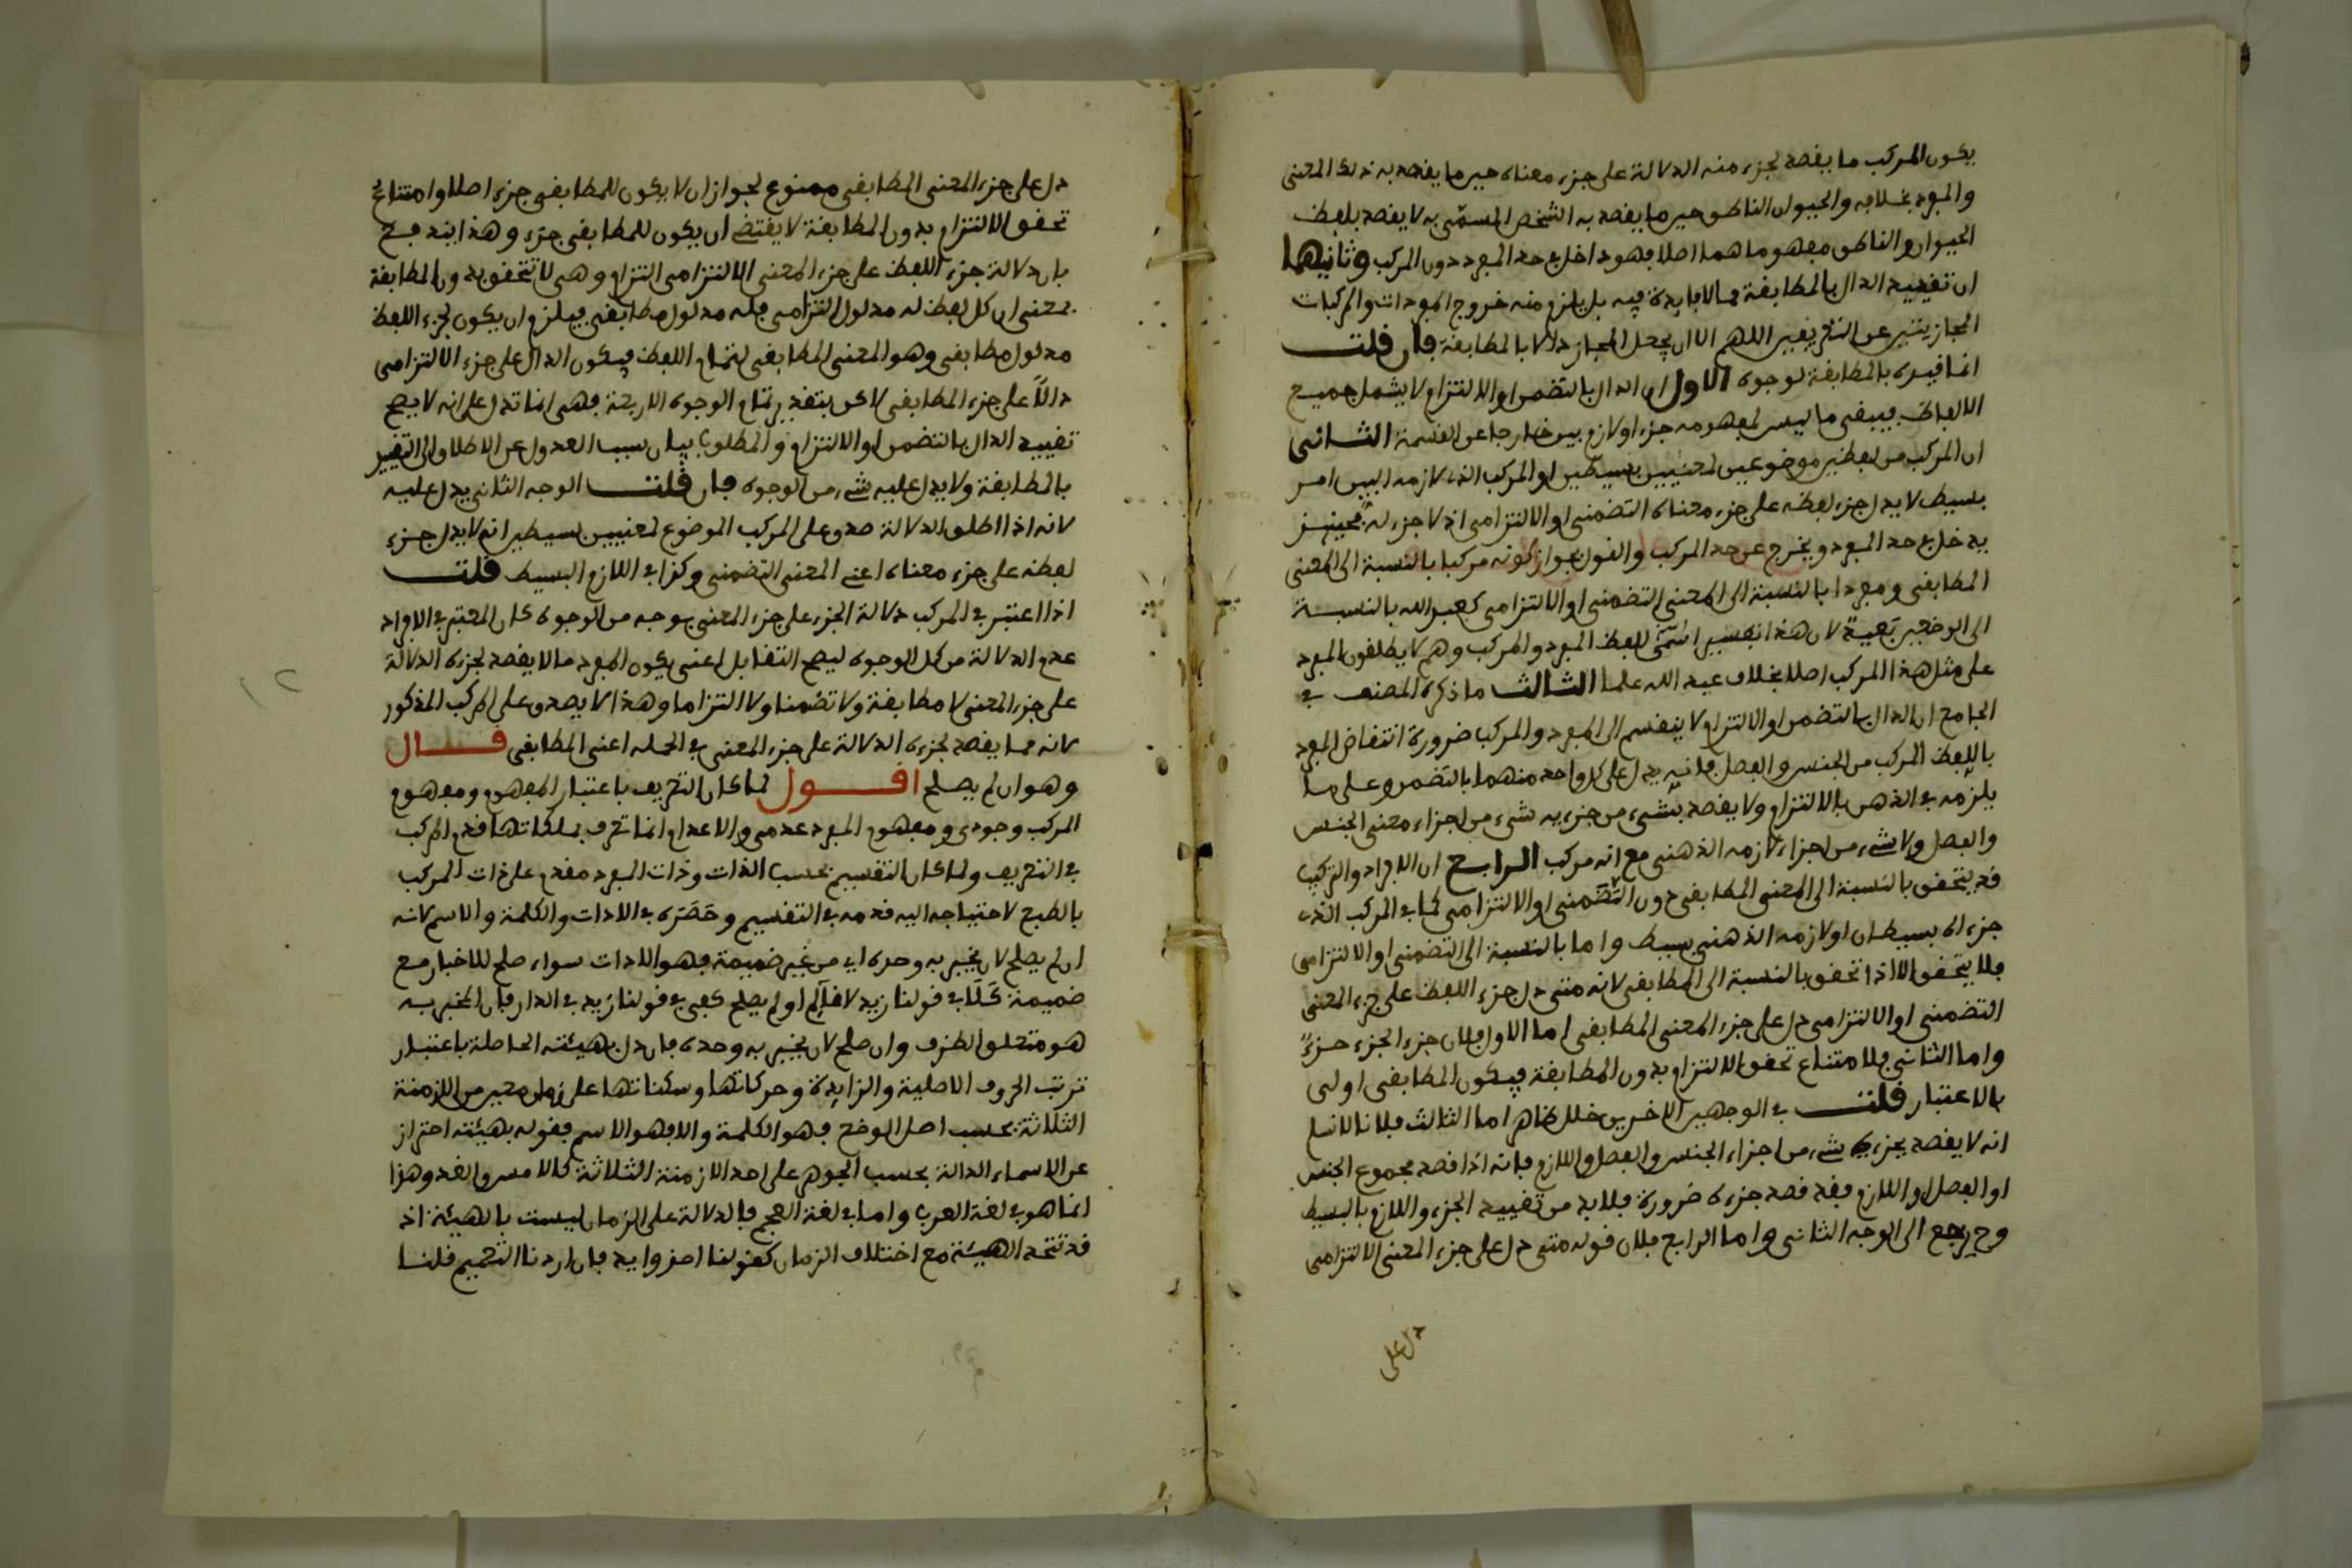 يكون المركب ما يقصد بجزء منه الدلالة على جزء معناه حين ما يقصد به ذلك المعنى
والمفرد بخلافه والحيوان الناطق حين ما يقصد به الشخص المسمى به لا يقصد بلفظ
الحيوان والناطق مفهوما هما اصلا فهو داخل في حد المفرد دون المركب وثانيهما
ان تقييد الدال بالمطابقة مما لا فايدة فيه بل يلزم منه خروج المفردات والمركبات
المجازيتين عن التعريفين اللهم الا ان يجعل المجاز دلالا بالمطابقة فان قلت
انما قيده بالمطابقة لوجوه الاول ان الدال بالتضمن او الالتزام لا يشمل جميع
الالفاظ فيبقى ما ليس لمفهومه جزء او لازم بين خارجا عن القسمة الثاني
ان المركب من لفظين موضوعين لمعنيين بسيطين او المركب الذى لازمه البين امر
بسيط لا يدل جزء لفظه على جزء معناه التضمنى او الالتزامى اذ لا جزء له فحينئذ
يدخل في حد المفرد ويخرج عن حد المركب والقول بجواز كونه مركبا بالنسبة الى المعنى
المطابقى ومفردا بالنسبة الى المعنى التضمنى او الالتزامى كعبد الله بالنسبة
الى الوضعين لان هذا تفسير للفظ المفرد والمركب وهم لا يطلقون المفرد
على مثل هذا المركب اصلا بخلاف عبد الله علما الثالث ما ذكره المصنف في
الجامع ان الدال بالتضمن او الالتزام لا ينقسم الى المفرد والمركب ضرورة انتقاض المفرد
باللفظ المركب من الجنس والفصل فانه يدل على كل واحد منهما بالتضمن وعلى ما
يلزمه في الذهن بالالتزام ولا يقصد بشىء من جزءيه شىء من اجزاء معنى الجنس
والفصل ولا شىء من اجزاء لازمه الذهنى مع انه مركب الرابع ان الافراد والتركيب
قد يتحقق بالنسبة الى المعنى المطابقى دون التضمنى او الالتزامى كما في المركب الذى
جزءاه بسيطان او لازمه الذهنى بسيط واما بالنسبة الى التضمنى او الالتزامى
فلا يتحقق الا اذا تحقق بالنسبة الى المطابقى لانه متى دل جزء اللفظ على جزء المعنى
التضمنى او الالتزامى دل على جزء المعنى المطابقى اما الاول فلان جزء الجزء جزء
واما الثانى فلامتناع تحقق الالتزام بدون المطابقة فيكون المطابقى اولى
بالاعتبار قلت في الوجهين الاخرين خلل ظاهر اما الثالث فلانا لا نسلم
انه لا يقصد بجزءيه شىء من اجزاء الجنس والفصل واللازم فانه اذا قصد مجموع الجنس
او الفصل او اللازم فقد قصد جزءه ضرورة فلا بد من تقييد الجزء واللازم بالبسيط
وح يرجع الى الوجه الثانى واما الرابع فلان قوله متى دل على جزء المعنى الالتزامى
دل على
دل على جزء المعنى المطابقى ممنوع لجواز ان لا يكون للمطابقى جزء اصلا وامتناع
تحقق الالتزام بدون المطابقة لا يقتضى ان يكون للمطابقى جزء وهذا يندفع
بان دلالة جزء اللفظ على جزء المعنى الالتزامى التزام وهى لا تتحقق بدون المطابقة
بمعنى ان كل لفظ له مدلول التزامى فله مدلول مطابقى فيلزم ان يكون لجزء اللفظ
مدلول مطابقى وهو المعنى المطابقى لتمام اللفظ فيكون الدال على جزء الالتزامى
دالا على جزء المطابقى لاكن بتقدير تمام الوجوه الاربعة فهى انما تدل على انه لا يصح
تقييد الدال بالتضمن او الالتزام والمطلوب بيان سبب العدول عن الاطلاق الى التقييد
بالمطابقة ولا يدل عليه شىء من الوجوه فان قلت الوجه الثانى يدل عليه
لانه اذا اطلق الدلالة صدق على المركب الموضوع لمعنيين بسيطين انه لا يدل جزء
لفظه على جزء معناه اعنى المعنى التضمنى وكذا في اللازم البسيط قلت
اذا اعتبر في المركب دلالة الجزء على جزء المعنى بوجه من الوجوه كان المعتبر في الافراد
عدم الدلالة من كل الوجوه ليصح التقابل اعنى يكون المفرد ما لا يقصد بجزءه الدلالة
على جزء المعنى لا مطابقة ولا تضمنا ولا التزاما وهذا لا يصدق على المركب المذكور
لانه مما يقصد بجزءه الدلالة على جزء المعنى في الجملة اعنى المطابقى قال
وهو ان لم يصلح اقول لما كان التعريف باعتبار المفهوم ومفهوم
المركب وجودى ومفهوم المفرد عدمى والاعدام انما تعرف بملكاتها قدم المركب
في التعريف ولما كان التقسيم بحسب الذات وذات المفرد مقدم على ذات المركب
بالطبع لاحتياجه اليه قدمه في التقسيم وحصره في الادات والكلمة والاسم لانه
ان لم يصلح لان يخبر به وحده اى من غير ضميمة فهو الادات سواء صلح للاخبار مع
ضميمة كلا في قولنا زيد لا قايم او لم يصلح كفى في قولنا زيد في الدار فان المخبر به
هو متعلق الظرف وان صلح لان يخبر به وحده فان دل بهيئته الحاصلة باعتبار
ترتب الحروف الاصلية والزايدة وحركاتها وسكناتها على زمان معين من الازمنة
الثلاثة بحسب اصل الوضع فهو الكلمة والا فهو الاسم فقوله بهيئته احتراز
عن الاسماء الدالة بحسب الجوهر على احد الازمنة الثلاثة كالامس والغد وهذا
انما هو في لغة العرب واما في لغة العجم فالدلالة على الزمان ليست بالهيئة اذ
قد تتحد الهيئة مع اختلاف الزمان كقولنا فان اردنا التعميم قلنا
١٢